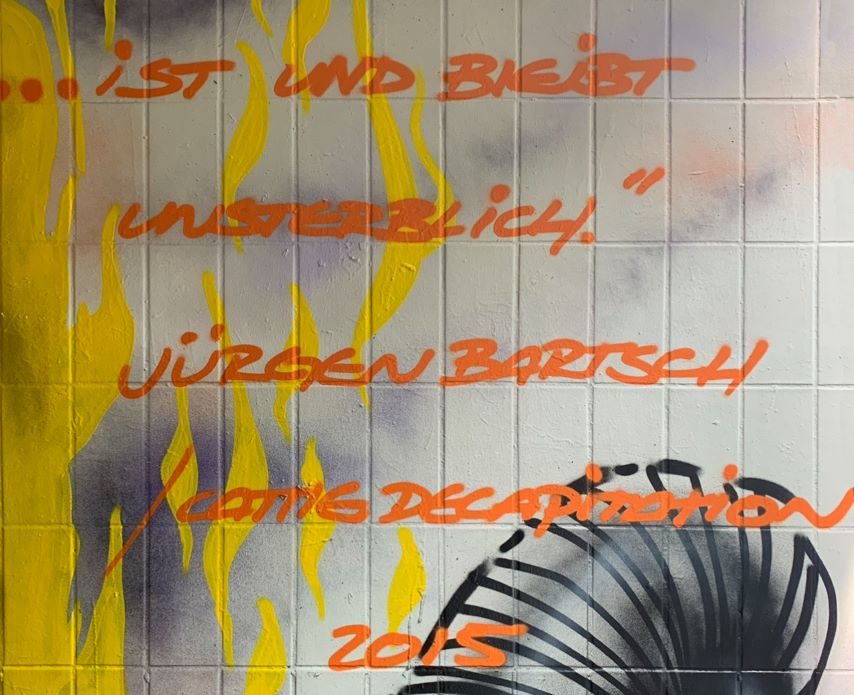 ...iST UND BLEiBT
UNSTERBLiCH."
JÜRGEN BARTSCH
/CATTLE DECAPiTATiON
2015